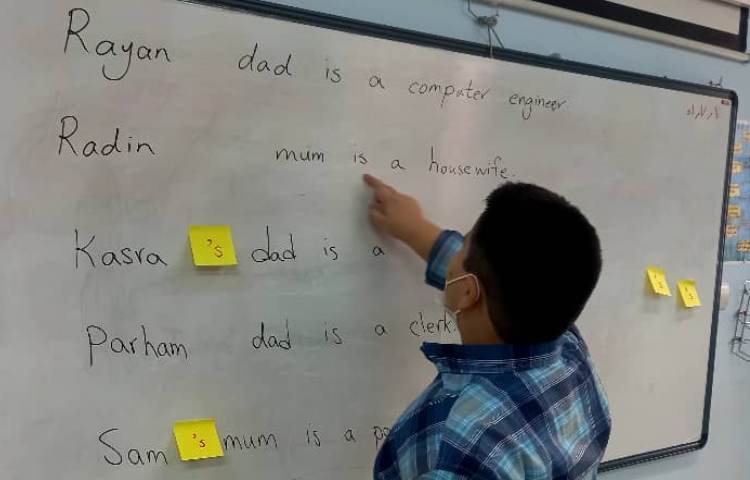 Rayan dad is a computer engineer
Radin mum is a housewife.
Kasra 's dad is a
Parham dad is a clerk.
Sam 's mum is a
's
's